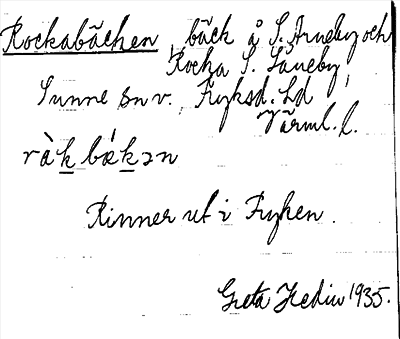 Rockabäcken, bäck å S. Arneby och
Rocka S. Låneby,
Sunne sn v., Fryksd. hd
Värml. l.
ràk bǽkən
Rinner ut i Fryken.
Greta Hedin 1935.